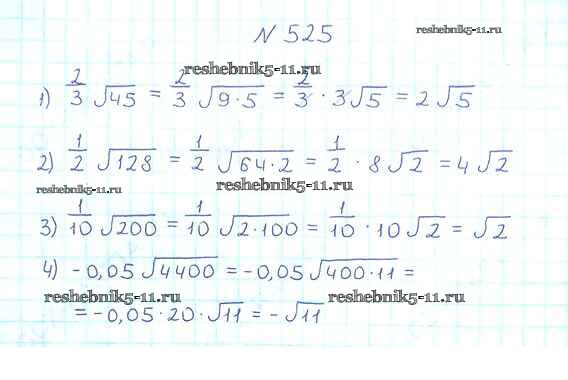 N 525
reshebnik5-11.ru
reshebnik5-11.ru
1) 2/3 √45 = 2/3 √9·5 = 2/3 · 3√5 = 2√5
2) 1/2 √128 = 1/2 √64·2 = 1/2 · 8√2 = 4√2
reshebnik5-11.ru
reshebnik5-11.ru
3) 1/10 √200 = 1/10 √2·100 = 1/10 · 10√2 = √2
4) -0,05 √4400 = -0,05 √400·11 =
reshebnik5-11.ru
reshebnik5-11.ru
= -0,05·20·√11 = -√11